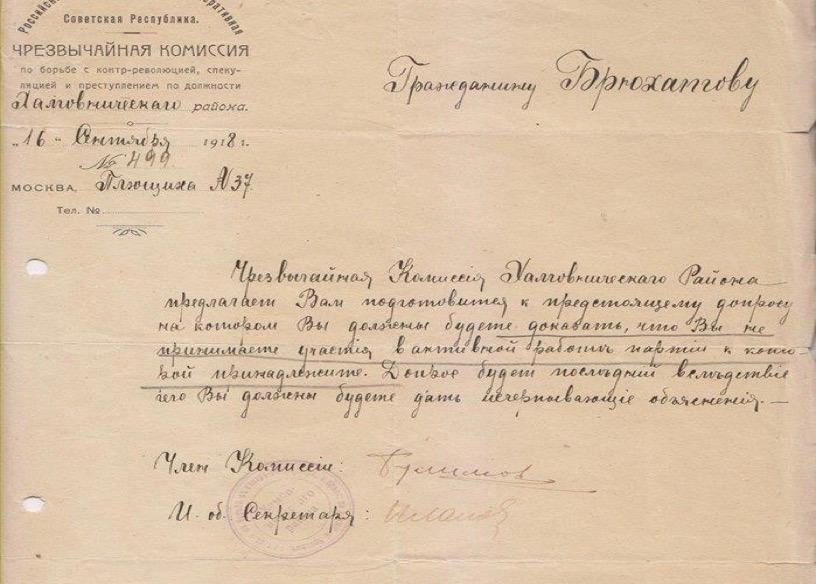 Советская Республика.
ЧРЕЗВЫЧАЙНАЯ КОМИССИЯ
по борьбе с контр-революцией, спеку-
ляцией и преступлением по должности
Хамовническаго района.
„16" Сентября 1918 г.
№ 499
МОСКВА, Плющиха №37.
Тел. №
Гражданину Брюхатову
Чрезвычайная Комиссія Хамовническаго Района
предлагает Вам подготовится к предстоящему допросу
на котором Вы должны будете доказать, что Вы не
принимаете участія в активной работѣ партіи к кото-
рой принадлежите. Допрос будет послѣдній вслѣдствіе
чего Вы должны будете дать исчерпывающіе объясненія. —
Член Комиссіи:
И. об. Секретаря: